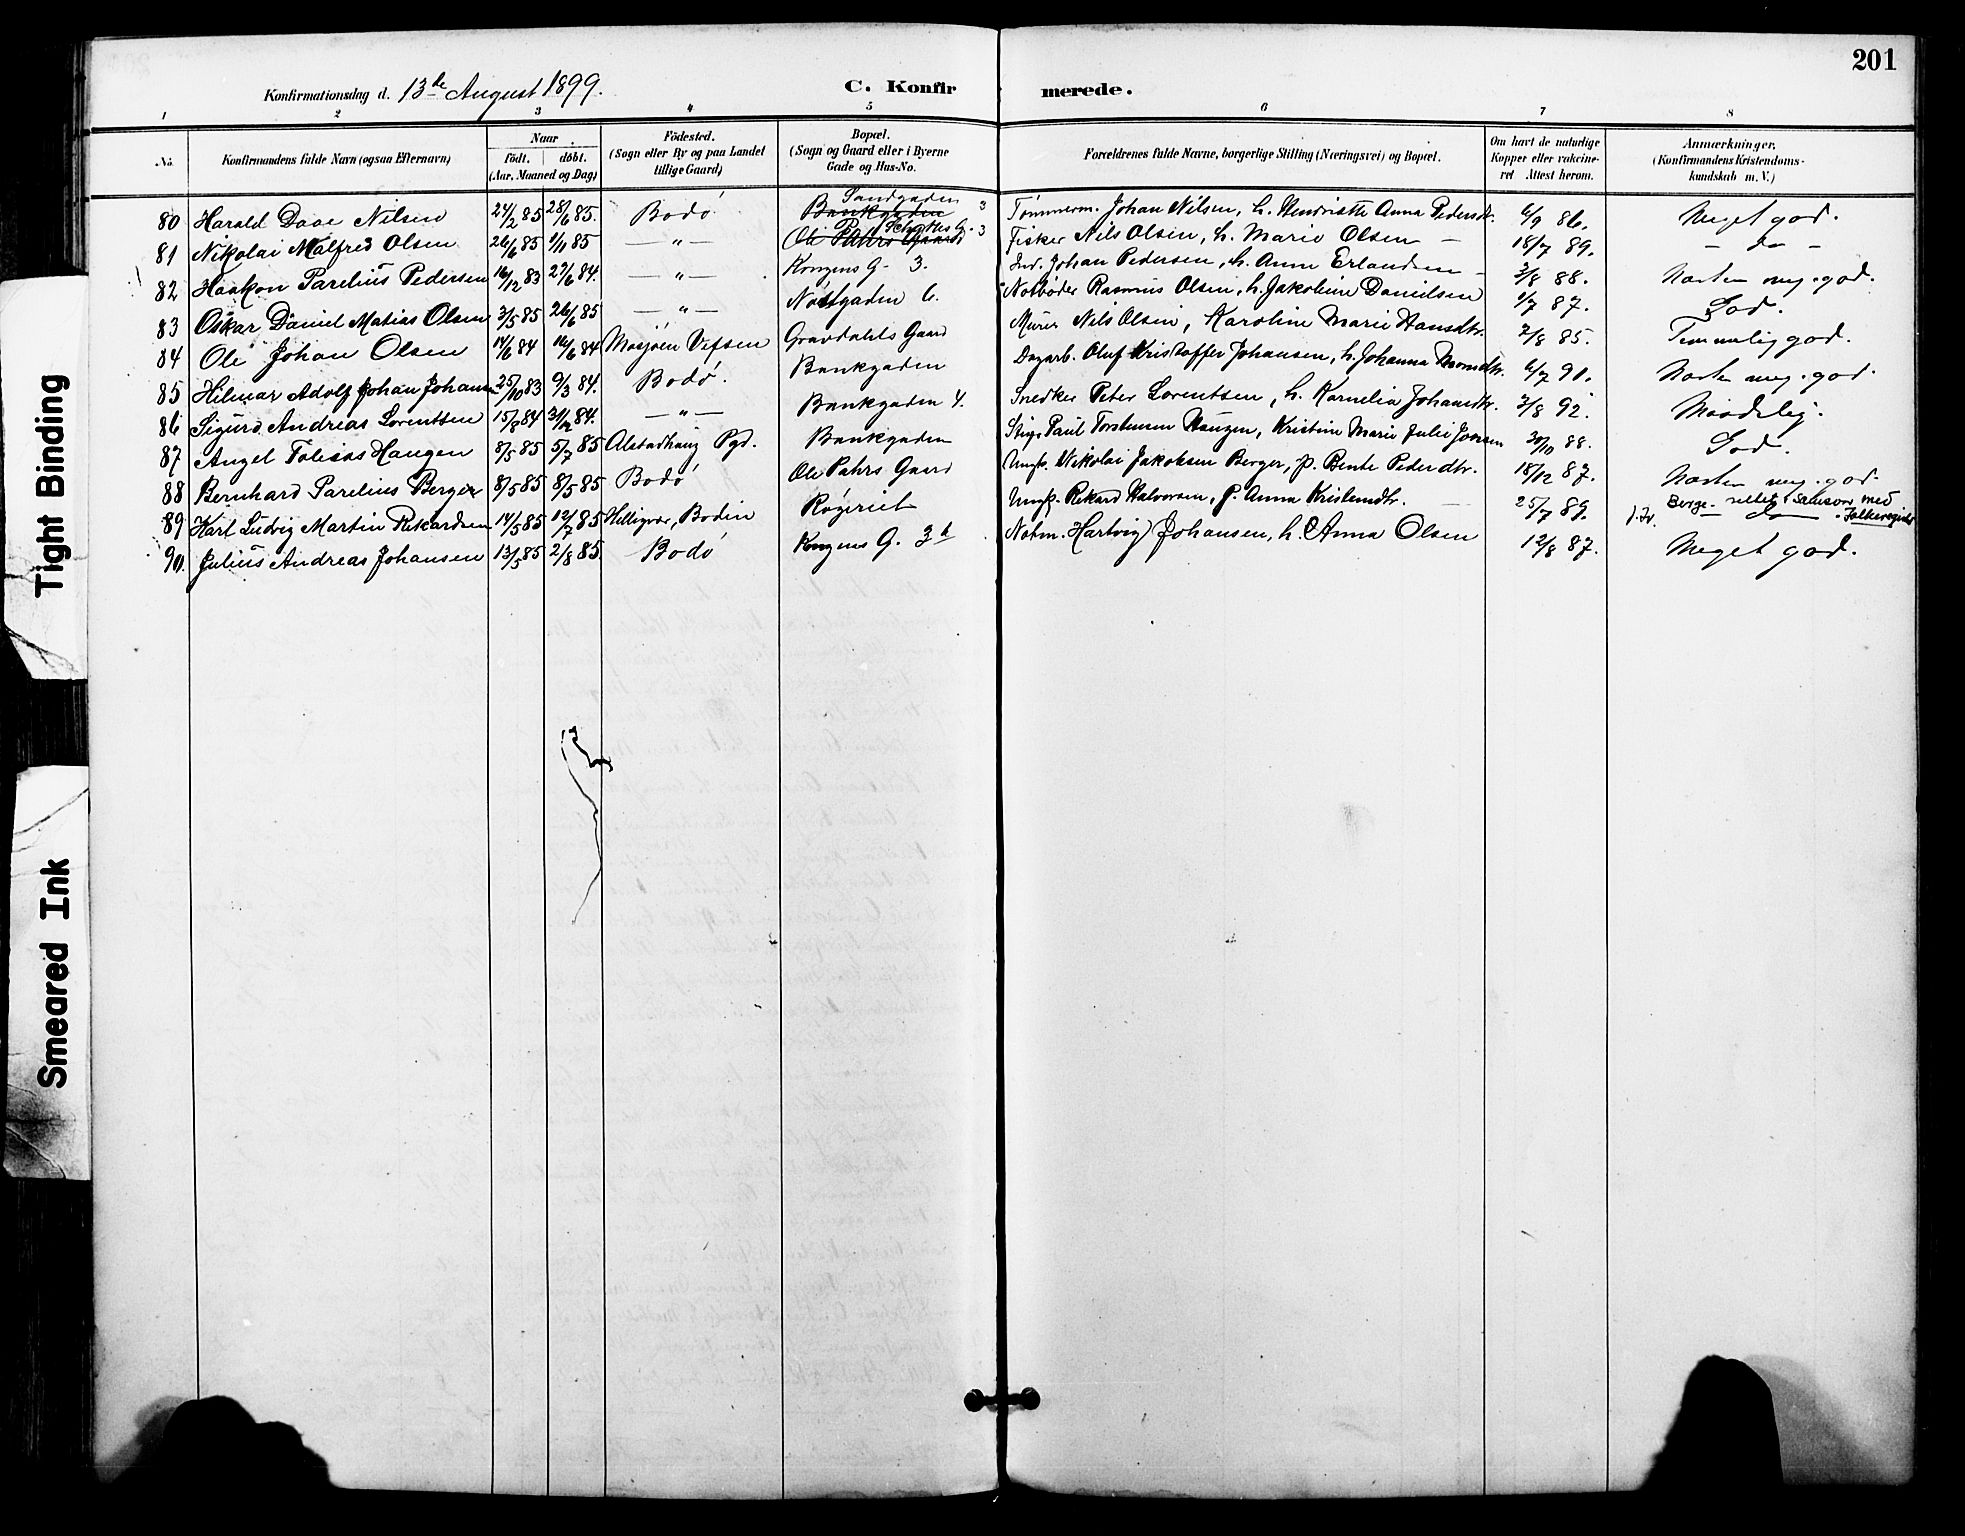 201
Konfirmationsdag d. 13de August 1899. C. Konfirmerede.
1 2 3 4 5 6 7 8
No. Konfirmandens fulde Navn (ogsaa Efternavn) Naar födt. döbt. (Aar, Maaned og Dag) Födested. (Sogn eller By og paa Landet tillige Gaard) Bopæl. (Sogn og Gaard eller i Byerne Gade og Hus-No. Forældrenes fulde Navne, borgerlige Stilling (Næringsvei) og Bopæl. Om havt de naturlige Kopper eller vakcineret Attest herom. Anmærkninger. (Konfirmandens Kristendomskundskab m. V.)
80 Harald Daae Nilsen 24/2 85 28/6 85. Bodö Bankgaden Sandgaden 3 Tömmerm. Johan Nilsen, h. Henriette Anna Pedersdr. 6/9 86. Meget god.
81 Nikolai Malfred Olsen 26/6 85 1/11 85 — " — Ole Pahrs Gaard 3 Fisker Nils Olsen, h. Marie Olsen — 18/7 89. — do —
82 Haakon Parelius Pedersen 16/12 83 27/6 84. — " — Kongens G. 3. Ind. Johan Pedersen, h. Anne Erlandsen — 3/8 88. Næsten meg. god.
83 Oskar Daniel Matias Olsen 3/5 85 26/6 85 — " — gaden 6. Notböder Rasmus Olsen, h. Jakobine Danielsen 1/7 87. God.
84 Ole Johan Olsen 14/6 84 16/6 84 Mosjöen Vefsen Gravdahls Gaard Murer Nils Olsen, Karoline Marie Hansdtr. 7/8 85. Temmelig god.
85 Hilmar Adolf Johan Johansen 25/10 83 9/3 84. Bodö. Bankgaden Dagarb. Oluf Kristoffer Johansen, h. Johanna Monsdtr. 6/7 91. Næsten meg. god.
86 Sigurd Andreas Lorentsen 15/8 84 31/12 84. — " — Bankgaden 4. Snedker Peter Lorentsen, h. Kornelia Johansdtr. 3/8 92. Maadelig.
87 Angel Tobias Haugen 8/5 85 5/7 85 Alstadhaug Pgd. Bankgaden Paul Torstensen Haugen, Kristine Marie Julie 30/10 88. God.
88 Bernhard Parelius Berger 8/5 85 8/5 85 Bodö Ole Pahrs Gaard Ungk. Nikolai Jakobsen Berger, p. Bente Pedersdtr. 18/12 87. Næsten meg. god.
Berge - rettet i samsvar med Folkeregister
89 Karl Ludvig Martin Rikardsen 14/5 85 12/7 85 Helligvær, Bodin Röjeriet Ungk. Rikard Halvorsen, p. Anna Kristendtr. — 25/7 89. — do —
90. Julius Andreas Johansen 13/5 85 2/8 85 Bodö Kongens G. 3 b Notm. Hartvig Johansen, h. Anna Olsen 12/8 87. Meget god.
Tight Binding
Smeared Ink